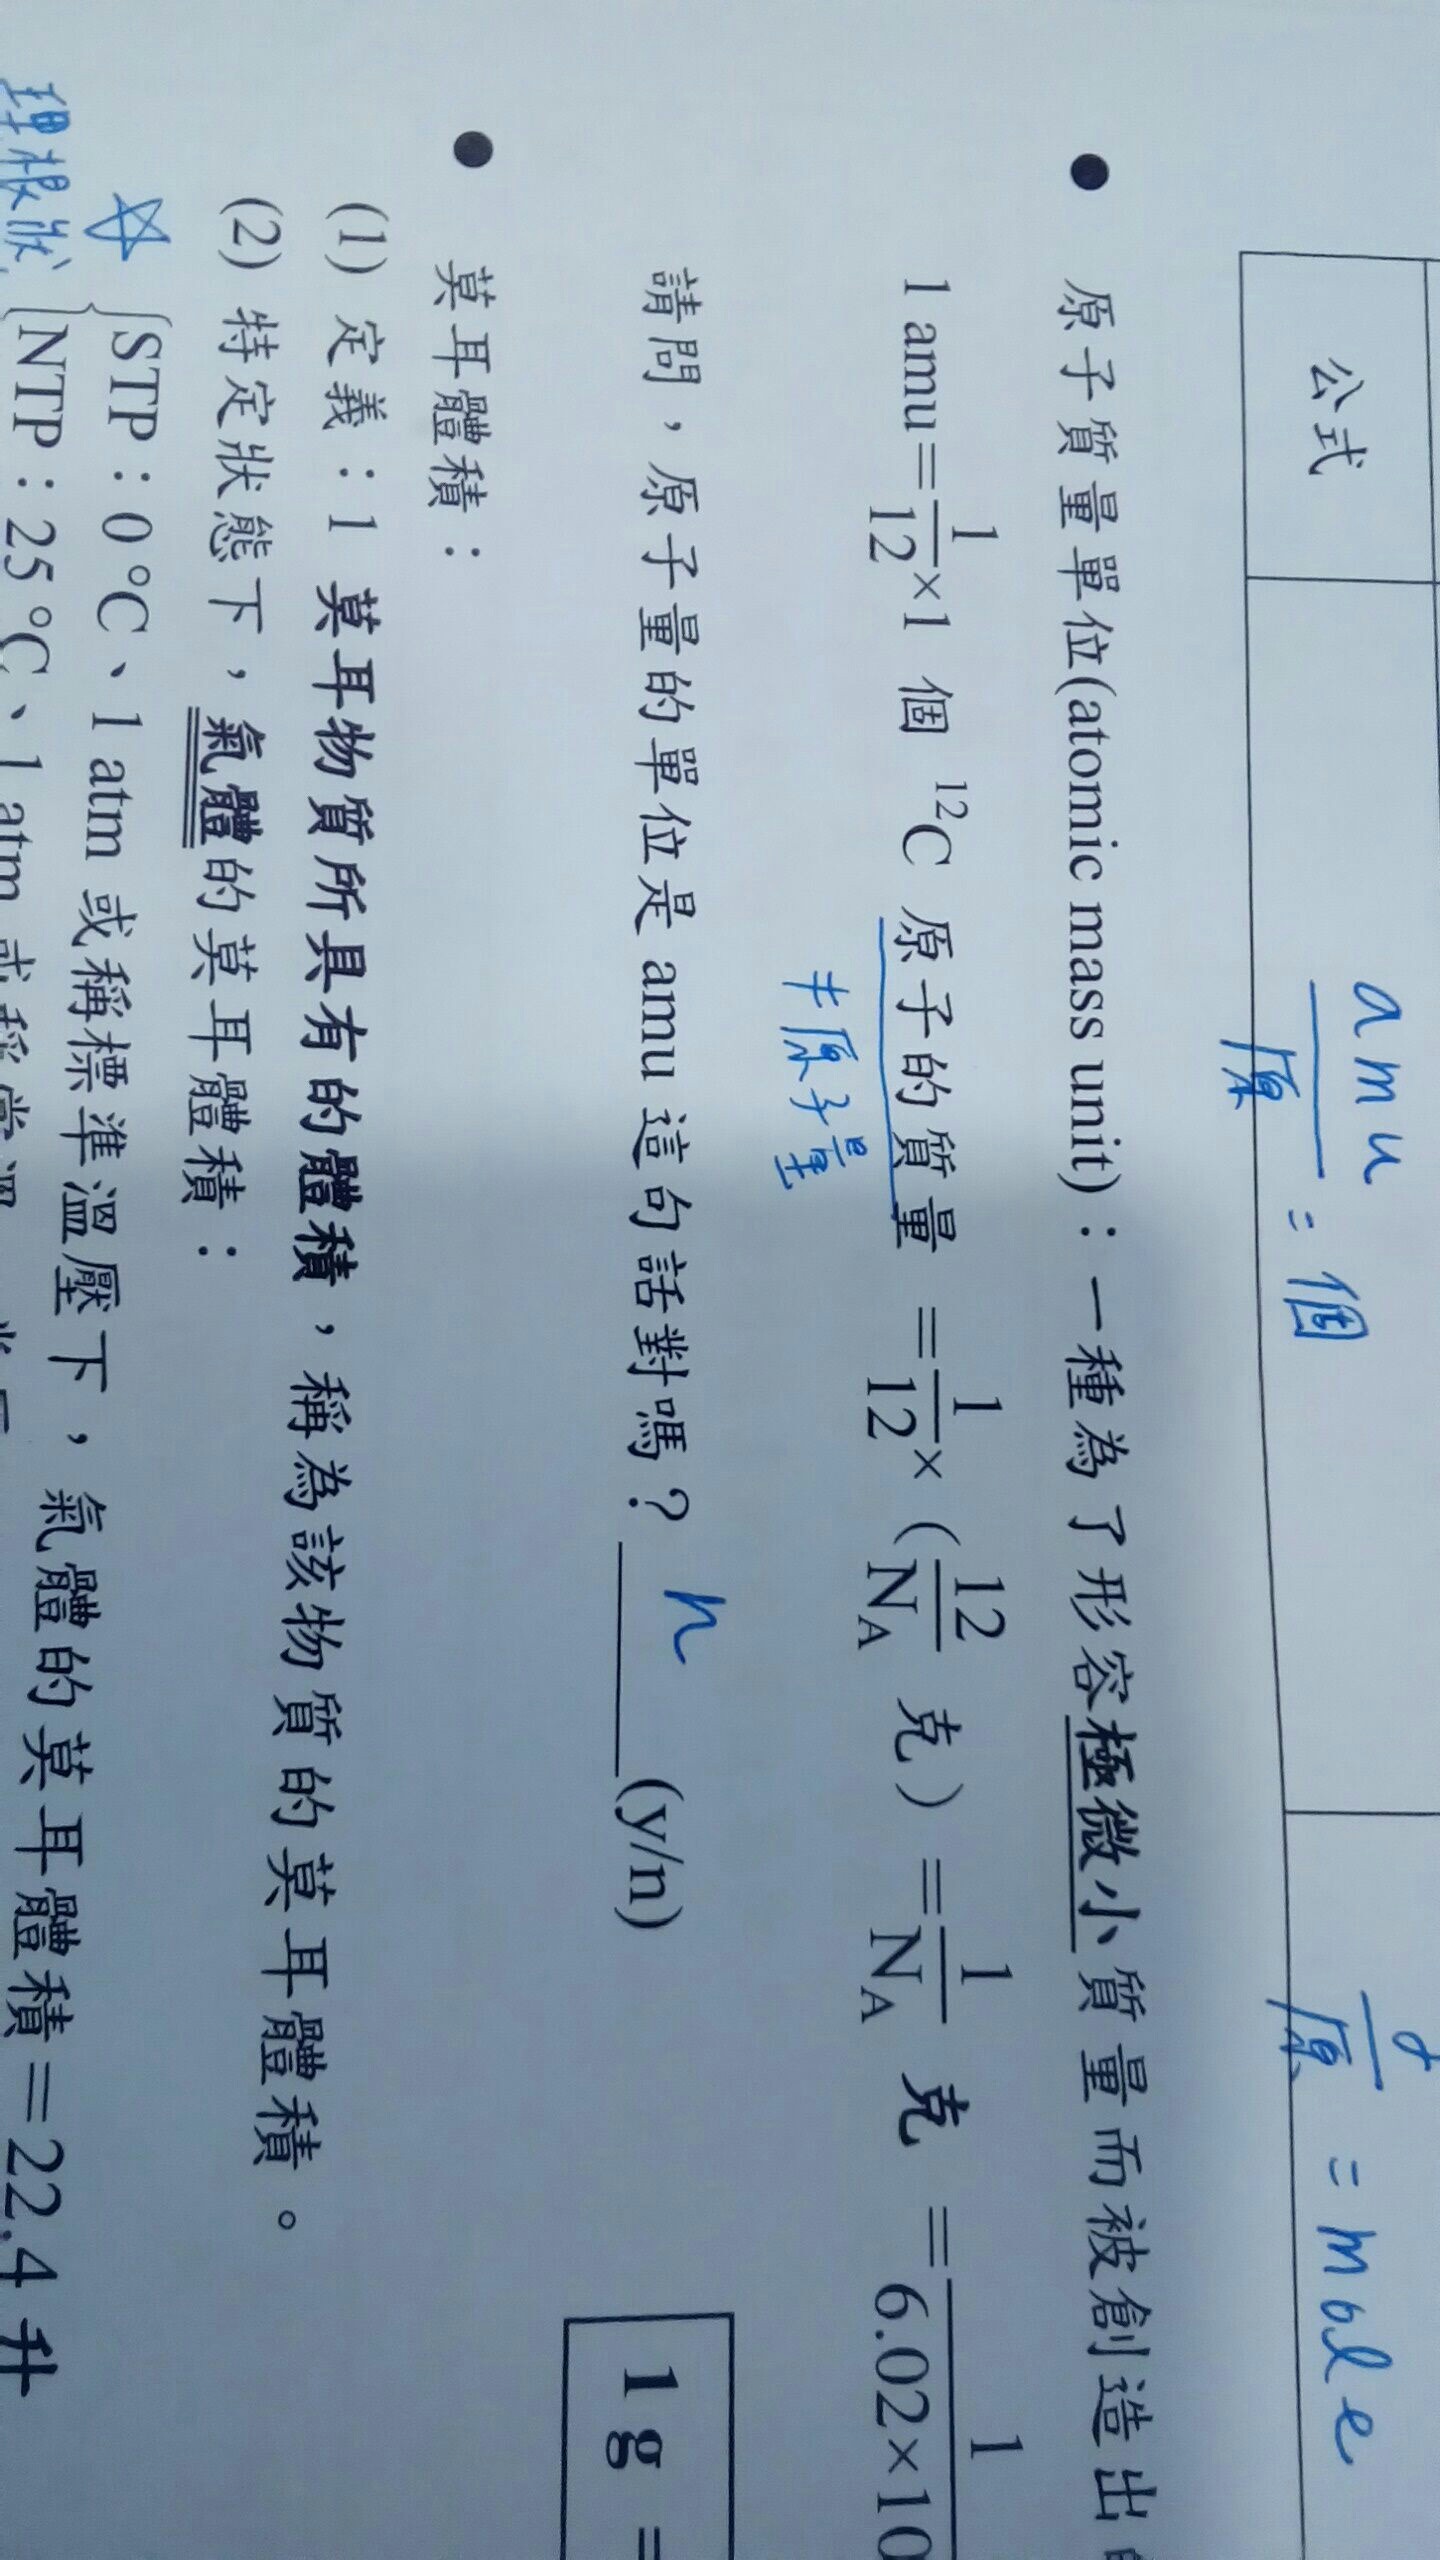 公式
amu/原 = 個
/原 = mole
● 原子質量單位(atomic mass unit)：一種為了形容極微小質量而被創造出
1 amu=1/12×1 個 ¹²C 原子的質量 =1/12×(12/N_A 克) =1/N_A 克 =1/6.02×10
≠原子量
請問，原子量的單位是 amu 這句話對嗎？ n (y/n)
1 g =
● 莫耳體積：
(1) 定義：1 莫耳物質所具有的體積，稱為該物質的莫耳體積。
(2) 特定狀態下，氣體的莫耳體積：
☆ STP：0 °C、1 atm 或稱標準溫壓下，氣體的莫耳體積＝22.4 升
理想狀 NTP：25 °C、1 atm 或稱常溫